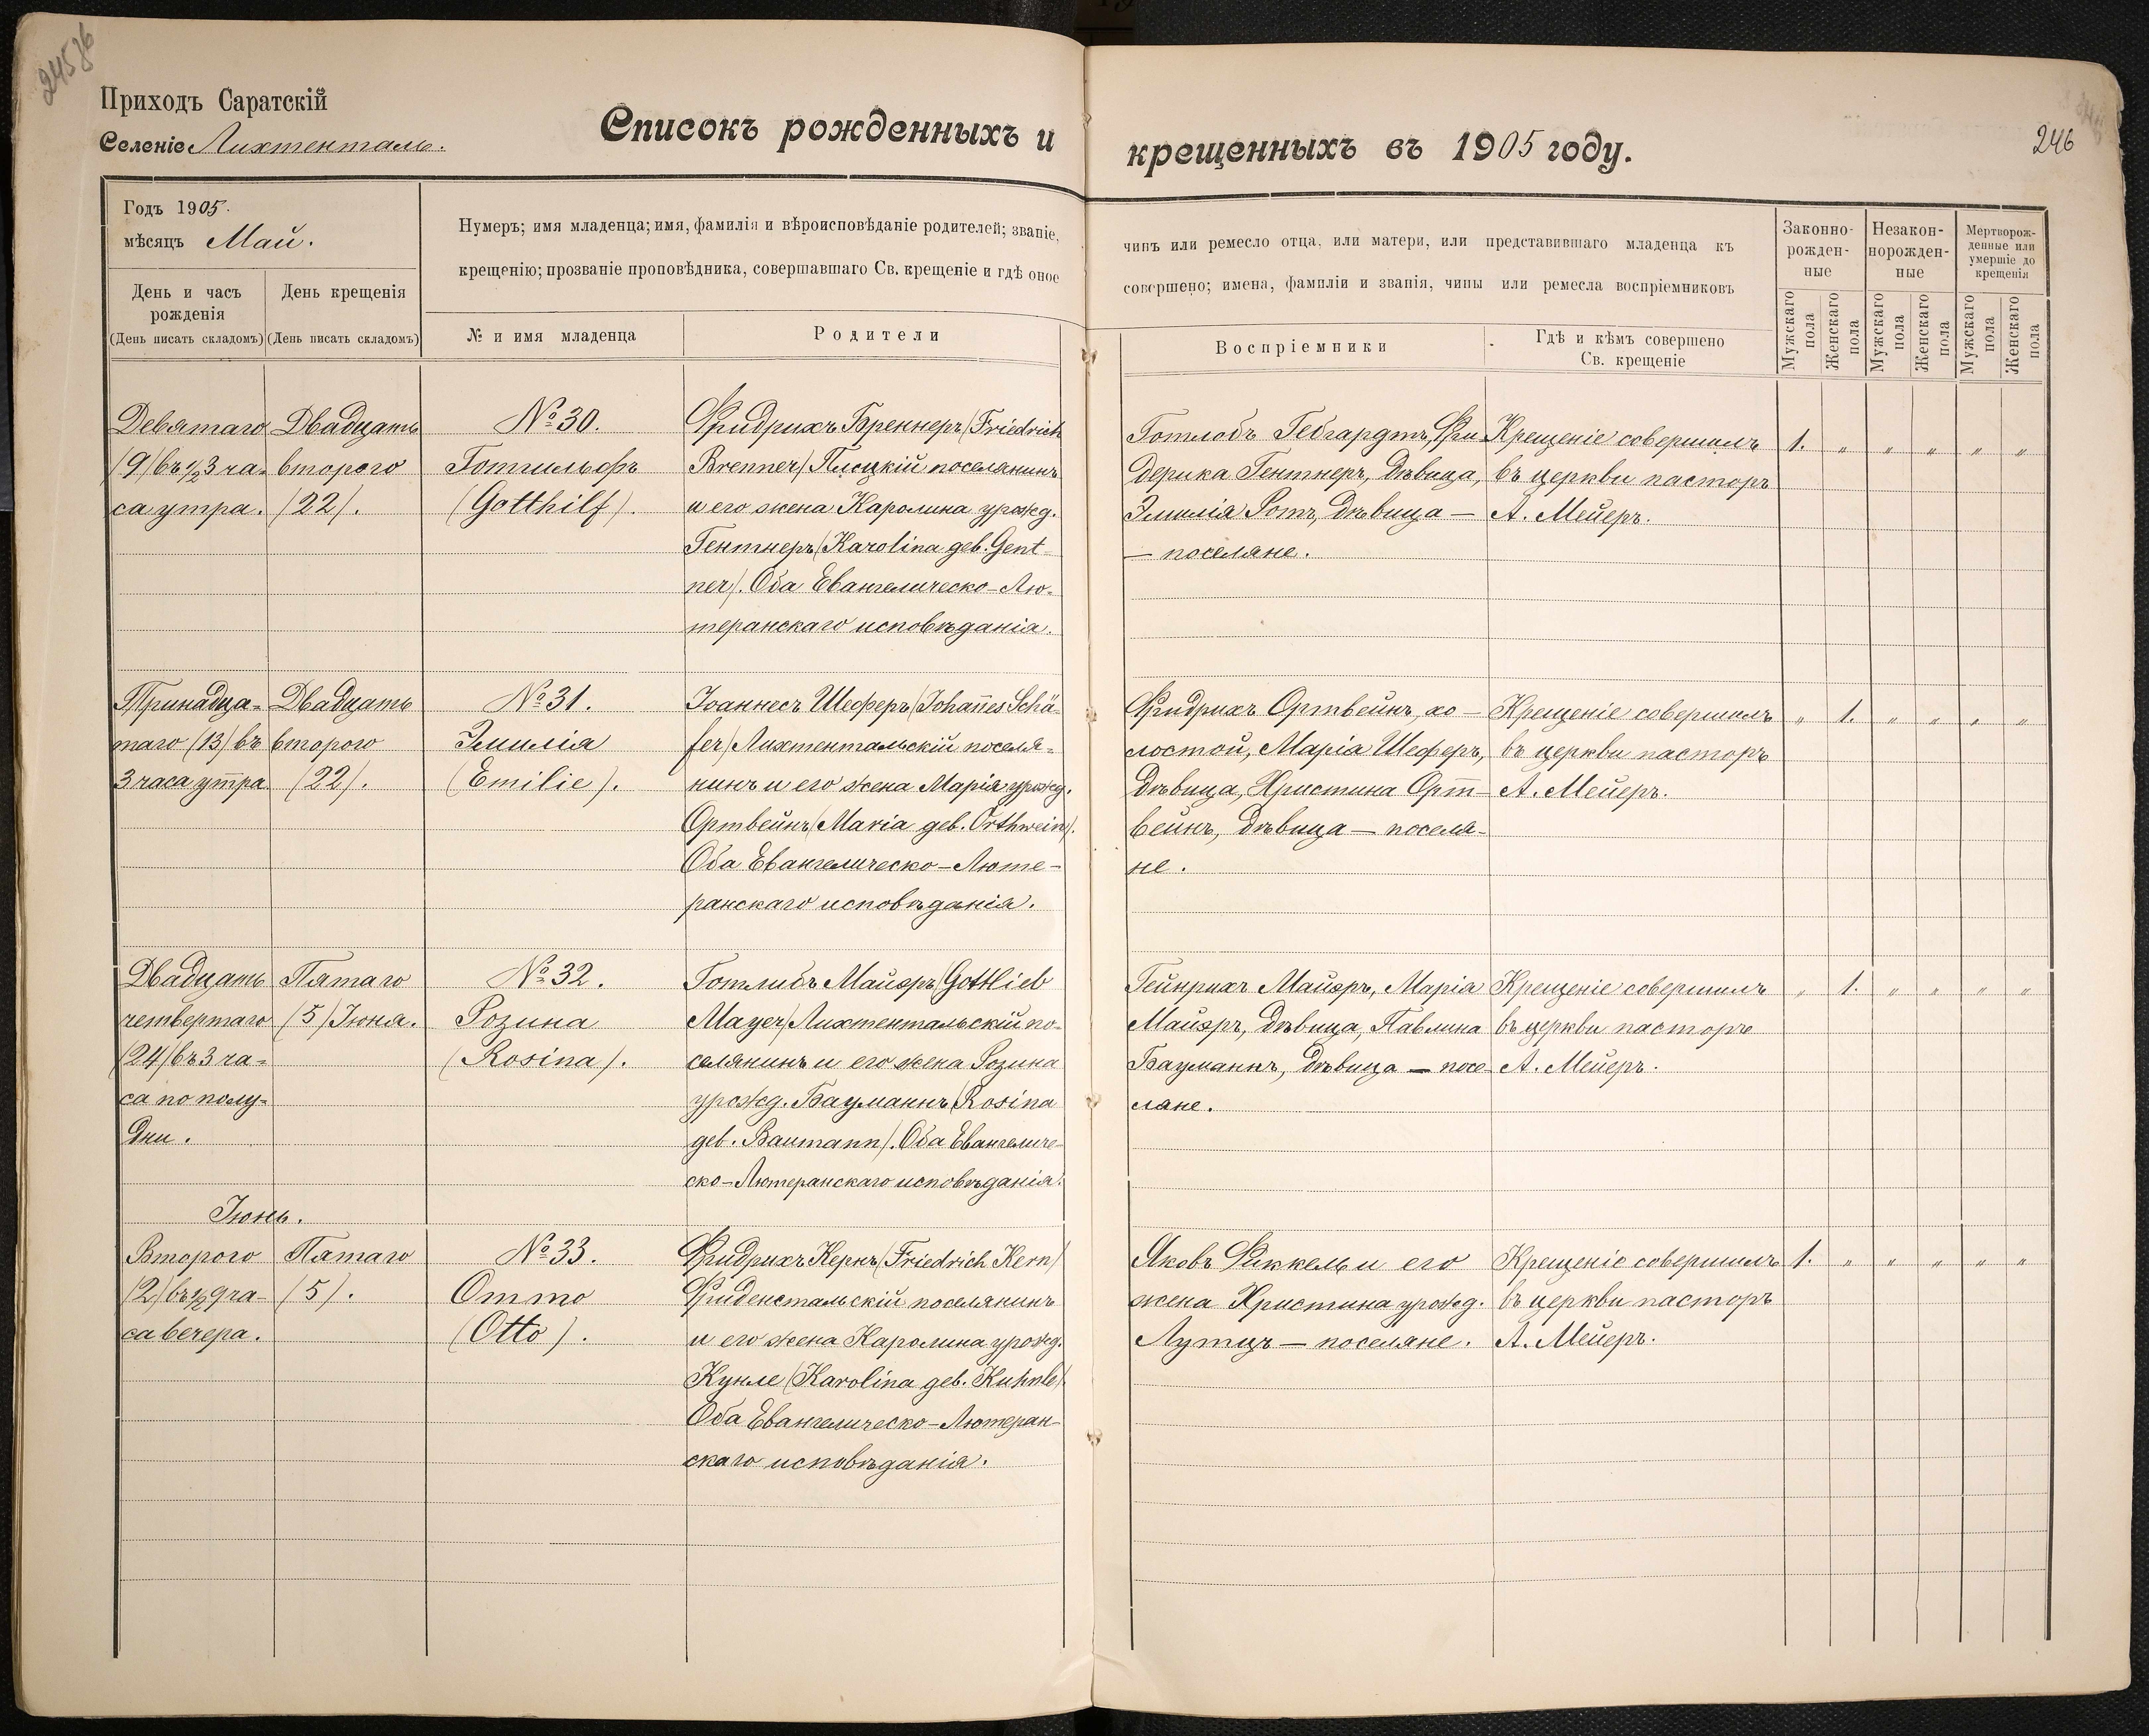 Приходъ Саратскій
Селеніе Лихтенталь.
Списокъ рожденныхъ и крещенныхъ въ 1905 году.
246
Годъ 1905.
мѣсяцъ Май.
Нумеръ; имя младенца; имя, фамилія и вѣроисповѣданіе родителей; званіе,
крещенію; прозваніе проповѣдника, совершавшаго Св. крещеніе и гдѣ оное
чинъ или ремесло отца, или матери, или представившаго младенца къ
совершено; имена, фамиліи и званія, чины или ремесла воспріемниковъ
День и часъ
рожденія
(День писать складомъ)
День крещенія
(День писать складомъ)
№ и имя младенца
Родители
Воспріемники
Гдѣ и кѣмъ совершено
Св. крещеніе
Законно-
рожден-
ные
Незакон-
норожден-
ные
Мертворож-
денные или
умершіе до
крещенія
Мужскаго
пола
Женскаго
пола
Мужскаго
пола
Женскаго
пола
Мужскаго
пола
Женскаго
пола
Девятаго
(9) въ ½3 ча-
са утра.
Двадцать
второго
(22).
№ 30.
Готгильфъ
(Gotthilf).
Фридрихъ Бреннеръ (Friedrich
Brenner) Плоцкій поселянинъ
и его жена Каролина урожд.
Гентнеръ (Karolina geb. Gent-
ner). Оба Евангелическо-Лю-
теранскаго исповѣданія.
Готлобъ Гебгардтъ, Фри-
дерика Гентнеръ, дѣвица,
Эмилія Ротъ, дѣвица —
— поселяне.
Крещеніе совершилъ
въ церкви пасторъ
А. Мейеръ.
1. „ „ „ „ „
Тринадца-
таго (13) въ
3 часа утра
Двадцать
второго
(22).
№ 31.
Эмилія
(Emilie).
Іоаннесъ Шеферъ (Johannes Schä-
fer) Лихтентальскій поселя-
нинъ и его жена Марія урожд.
Ортвейнъ (Maria geb. Orthwein).
Оба Евангелическо-Люте-
ранскаго исповѣданія.
Фридрихъ Ортвейнъ, хо-
лостой, Марія Шеферъ,
дѣвица, Христина Орт-
вейнъ, дѣвица — поселя-
не.
Крещеніе совершилъ
въ церкви пасторъ
А. Мейеръ.
„ 1. „ „ „ „
Двадцать
четвертаго
(24) въ 3 ча-
са по полу-
дни.
Пятаго
(5) Іюня.
№ 32.
Розина
(Rosina).
Готлибъ Майэръ (Gottlieb
Mayer) Лихтентальскій по-
селянинъ и его жена Розина
урожд. Бауманнъ (Rosina
geb. Baumann). Оба Евангеличе-
ско-Лютеранскаго исповѣданія.
Гейнрихъ Майэръ, Марія
Майэръ, дѣвица, Павлина
Бауманнъ, дѣвица — посе-
ляне.
Крещеніе совершилъ
въ церкви пасторъ
А. Мейеръ.
„ 1. „ „ „ „
Іюнь.
Второго
(2) въ ½9 ча-
са вечера.
Пятаго
(5).
№ 33.
Отто
(Otto).
Фридрихъ Кернъ (Friedrich Kern)
Фриденстальскій поселянинъ
и его жена Каролина урожд.
Кунле (Karolina geb. Kuhnle).
Оба Евангелическо-Лютеран-
скаго исповѣданія.
Яковъ Фиккель и его
жена Христина урожд.
Лутцъ — поселяне.
Крещеніе совершилъ
въ церкви пасторъ
А. Мейеръ.
1. „ „ „ „ „